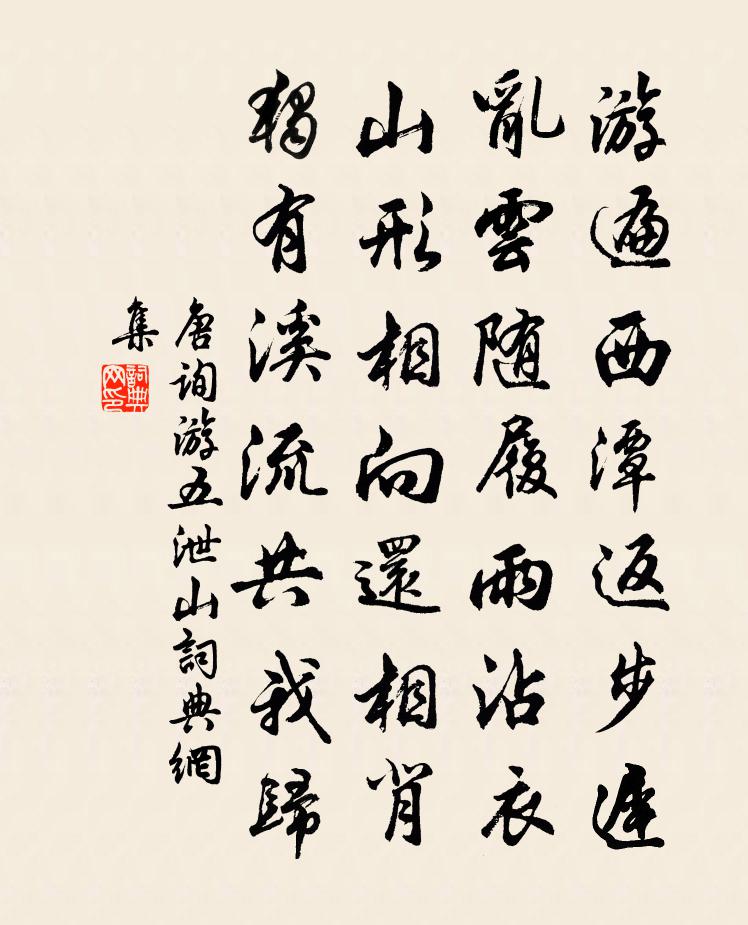 游遍西潭返步遲
亂雲随履雨沾衣
山形相向還相背
獨有溪流共我歸
唐詢游五泄山詞典網
集
詞典網印